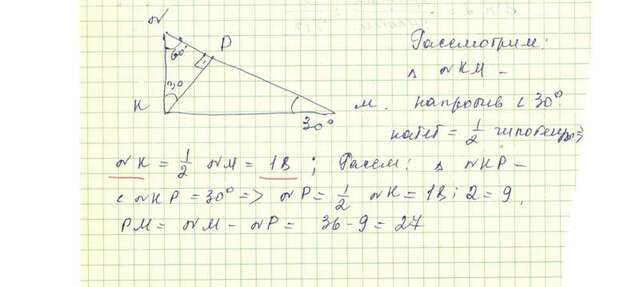 N
60°
P
Рассмотрим:
30
Δ NKM –
K
M.
напротив < 30°
30°
катет = 1/2 гипотенузы =>
NK = 1/2 NM = 18 ; Рассм: Δ NKP –
< NKP = 30° => NP = 1/2 NK = 18 : 2 = 9.
PM = NM – NP = 36 - 9 = 27